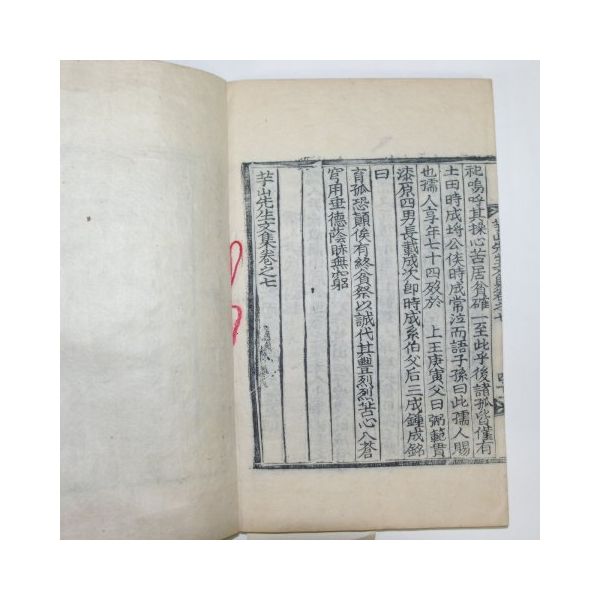 芋山先生文集卷之七
祀嗚呼其操心苦居貧確一至此乎後諸孤皆僅有
土田時成將公俟時成常泣而語子孫曰此孺人賜
也孺人享年七十四歿於 上王庚寅父曰弼範貫
漆原四男長載成次卽時成系伯父后三成鍾成銘
曰
育孤恐顚俟有終貧祭以誠代其豐烈烈苦心八苔
穹用垂德蔭眎無窮
芋山先生文集卷之七